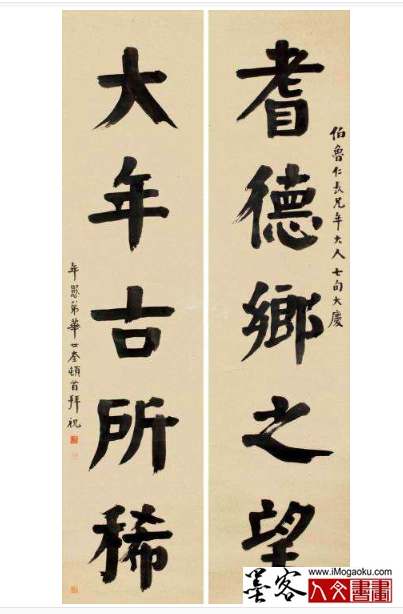 伯魯仁長兄年大人七旬大慶
耆德鄉之望
大年古所稀
年愚弟華世奎頓首拜祝
墨客
www.iMogaoku.com
人文書畫